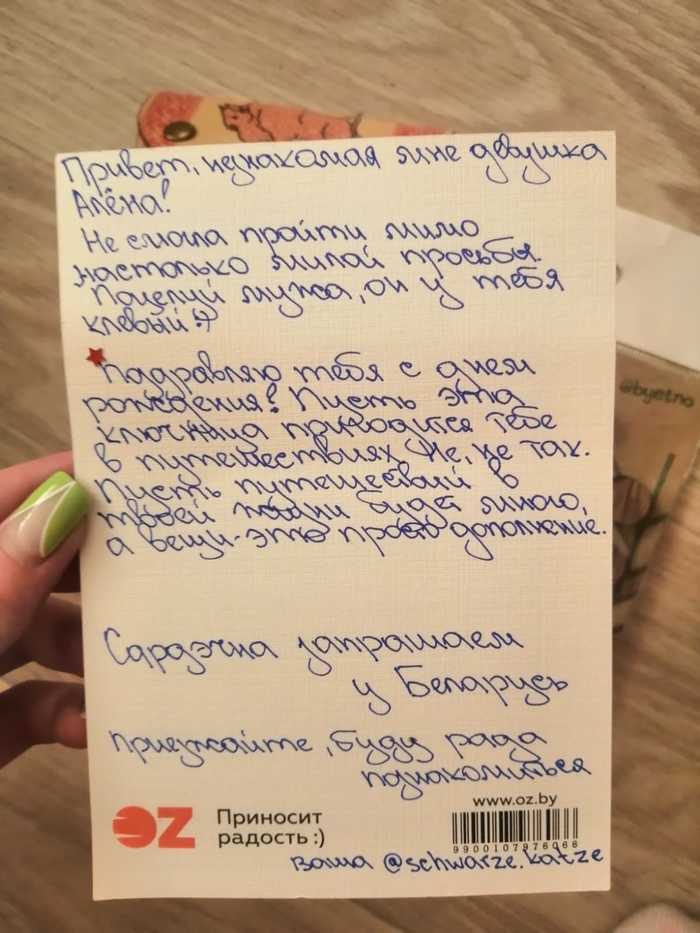 Привет, незнакомая мне девушка
Алёна!
Не смогла пройти мимо
настолько милой просьбы.
Поцелуй мужа, он у тебя
клевый :)
Поздравляю тебя с днем
рождения! Пусть эта
ключница пригодится тебе
в путешествиях. Не, не так.
Пусть путешествий в
твоей жизни будет много,
а вещи - это просто дополнение.
Сардэчна запрашаем
у Беларусь
приезжайте, буду рада
познакомиться
www.oz.by
oz Приносит
радость :)
9900107976066
ваша @schwarze.katze
@byetno